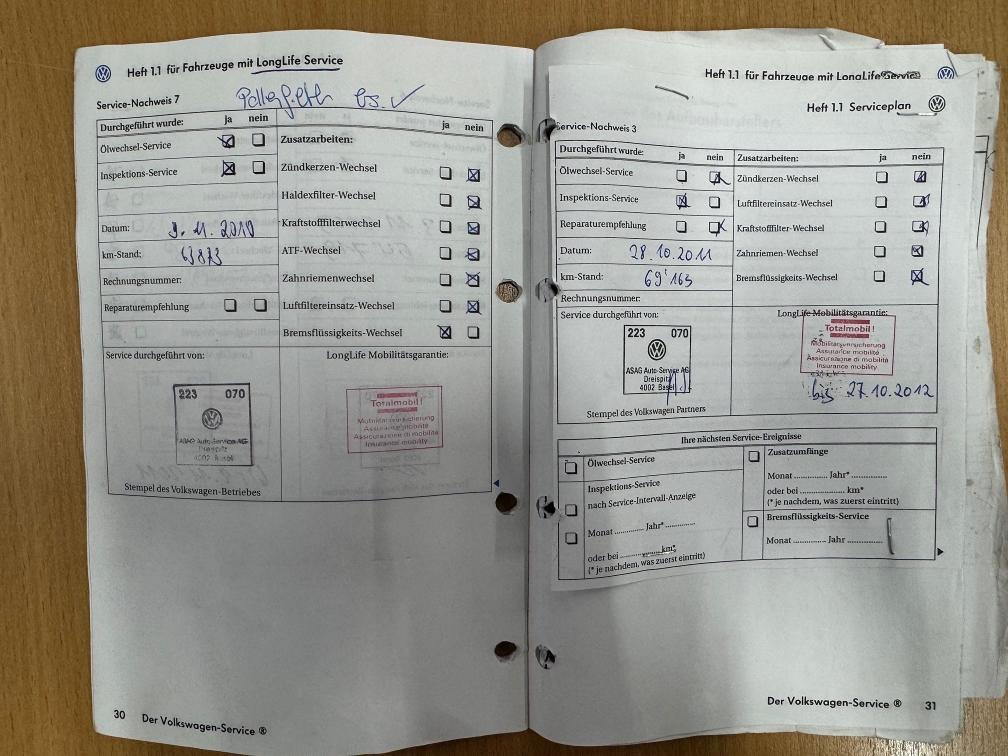 Heft 1.1 für Fahrzeuge mit LongLife Service
Service-Nachweis 7
Durchgeführt wurde: ja nein
Ölwechsel-Service
Inspektions-Service
Datum: 9.11.2010
km-Stand: 63873
Rechnungsnummer:
Reparaturempfehlung
Zusatzarbeiten: ja nein
Zündkerzen-Wechsel
Haldexfilter-Wechsel
Kraftstofffilterwechsel
ATF-Wechsel
Zahnriemenwechsel
Luftfiltereinsatz-Wechsel
Bremsflüssigkeits-Wechsel
Service durchgeführt von:
223 070
ASAG Auto-Service AG
Dreispitz
4002 Basel
Stempel des Volkswagen-Betriebes
LongLife Mobilitätsgarantie:
Totalmobil!
Mobilitätsversicherung
Assurance mobilité
Assicurazione di mobilità
Insurance mobility
30 Der Volkswagen-Service ®
Heft 1.1 für Fahrzeuge mit LongLife Service
Heft 1.1 Serviceplan
Service-Nachweis 3
Durchgeführt wurde: ja nein
Ölwechsel-Service
Inspektions-Service
Reparaturempfehlung
Datum: 28.10.2011
km-Stand: 69'165
Rechnungsnummer:
Zusatzarbeiten: ja nein
Zündkerzen-Wechsel
Luftfiltereinsatz-Wechsel
Kraftstofffilter-Wechsel
Zahnriemen-Wechsel
Bremsflüssigkeits-Wechsel
Service durchgeführt von:
223 070
ASAG Auto-Service AG
Dreispitz
4002 Basel
Stempel des Volkswagen Partners
LongLife Mobilitätsgarantie:
Totalmobil!
Mobilitätsversicherung
Assurance mobilité
Assicurazione di mobilità
Insurance mobility
bis 27.10.2012
Ihre nächsten Service-Ereignisse
Ölwechsel-Service
Inspektions-Service
nach Service-Intervall-Anzeige
Monat .......... Jahr* ..........
oder bei .......... km*
(* je nachdem, was zuerst eintritt)
Zusatzumfänge
Monat .......... Jahr* ..........
oder bei .......... km*
(* je nachdem, was zuerst eintritt)
Bremsflüssigkeits-Service
Monat .......... Jahr ..........
Der Volkswagen-Service ® 31